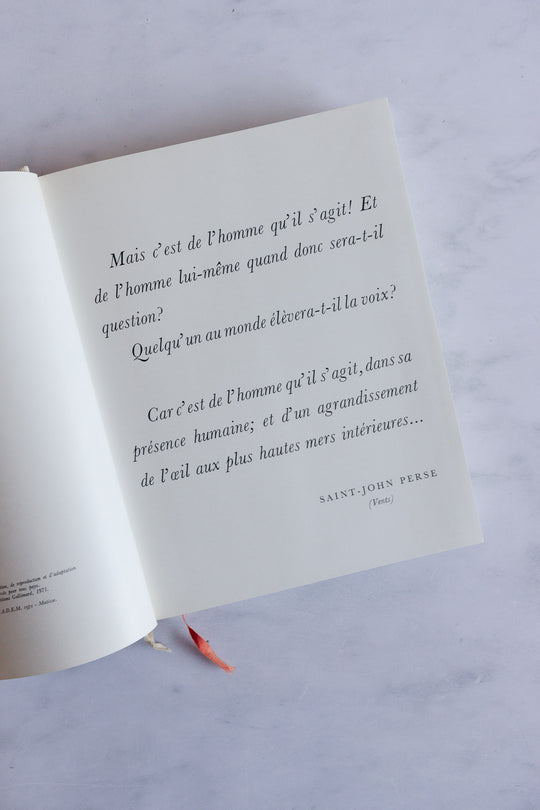 Mais c'est de l'homme qu'il s'agit! Et
de l'homme lui-même quand donc sera-t-il
question?
Quelqu'un au monde élèvera-t-il la voix?
Car c'est de l'homme qu'il s'agit, dans sa
présence humaine; et d'un agrandissement
de l'œil aux plus hautes mers intérieures...
SAINT-JOHN PERSE
(Vents)
de reproduction et d'adaptation
pour tous pays.
Gallimard, 1971.
A.D.E.M. 1971 -